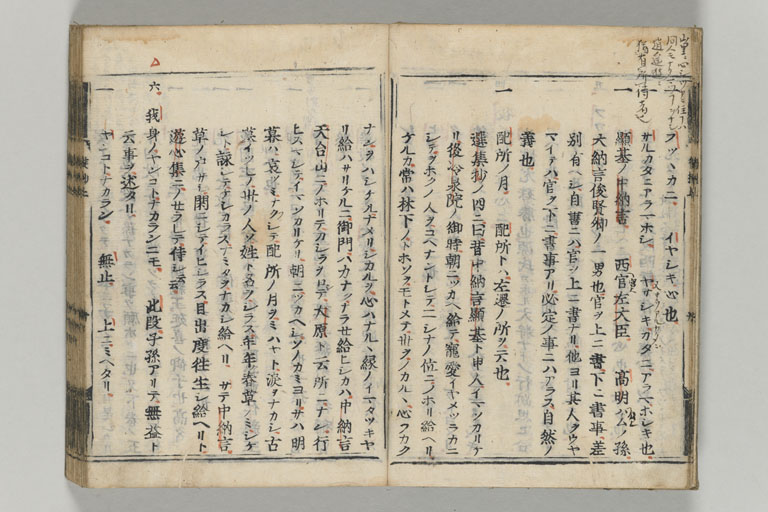 フツヽカニ　イヤシキ心也
サルカタニアラマホシ　ヤサシキカタニアラマホシキ也
一　顕基ノ中納言　西宮左大臣　高明公ノ孫
大納言俊賢卿ノ一男也官ヲ上ニ書下ニ書事差
別有ヘシ自書ニハ官ヲ上ニ書ナリ他ヨリ其人ヲウヤ
マイテハ官ヲ下ニ書事アリ必定ノ事ニハアラス自然ノ
義也
一　配所ノ月　配所トハ左遷ノ所ヲ云也
選集抄ノ四ニ曰昔中納言顕基ト申人イマソカリケ
リ後一条院ノ御時朝ニツカヘ給テ寵愛イヤメツラカニ
シテヲホクノ人ヲコヘナントシテ二シナノ位ニノホリ給ヘリ
ケルカ常ハ林下ノトホソヲモトメテ世ヲノカルヽ心フカク
ナンヲハシケルナメリシカルヲ心ハナルヽ縁ノイマタツキヤ
リ給ハサリケルニ御門ハカナクナラセ給ヒシカハ中納言
天台山ニノホリテカシラヲロシテ大原ト云所ニナン行
ヒスマシテイマソカリケリ朝ニツカヘシソノカミヨリサハ明
暮ハ哀ツミナクシテ配所ノ月ヲミハヤト涙ヲナカシ古
墓イツレノ世ノ人ソ姓ト名ヲシラス年年春草ノミシケ
シト詠シテシカラスナミタヲナカシ給ヘリ　サテ中納言
草ノ戸サシ閑ニシテイヒシラス目出度徃生シ給ヘリト
遊心集ニノセラレテ侍シ云云
六　我身ノヤンコトナカランニモ　此段子孫アリテ無益ト
云事ヲ述タリ
一　ヤンコトナカラン　無止　上ニミヘタリ